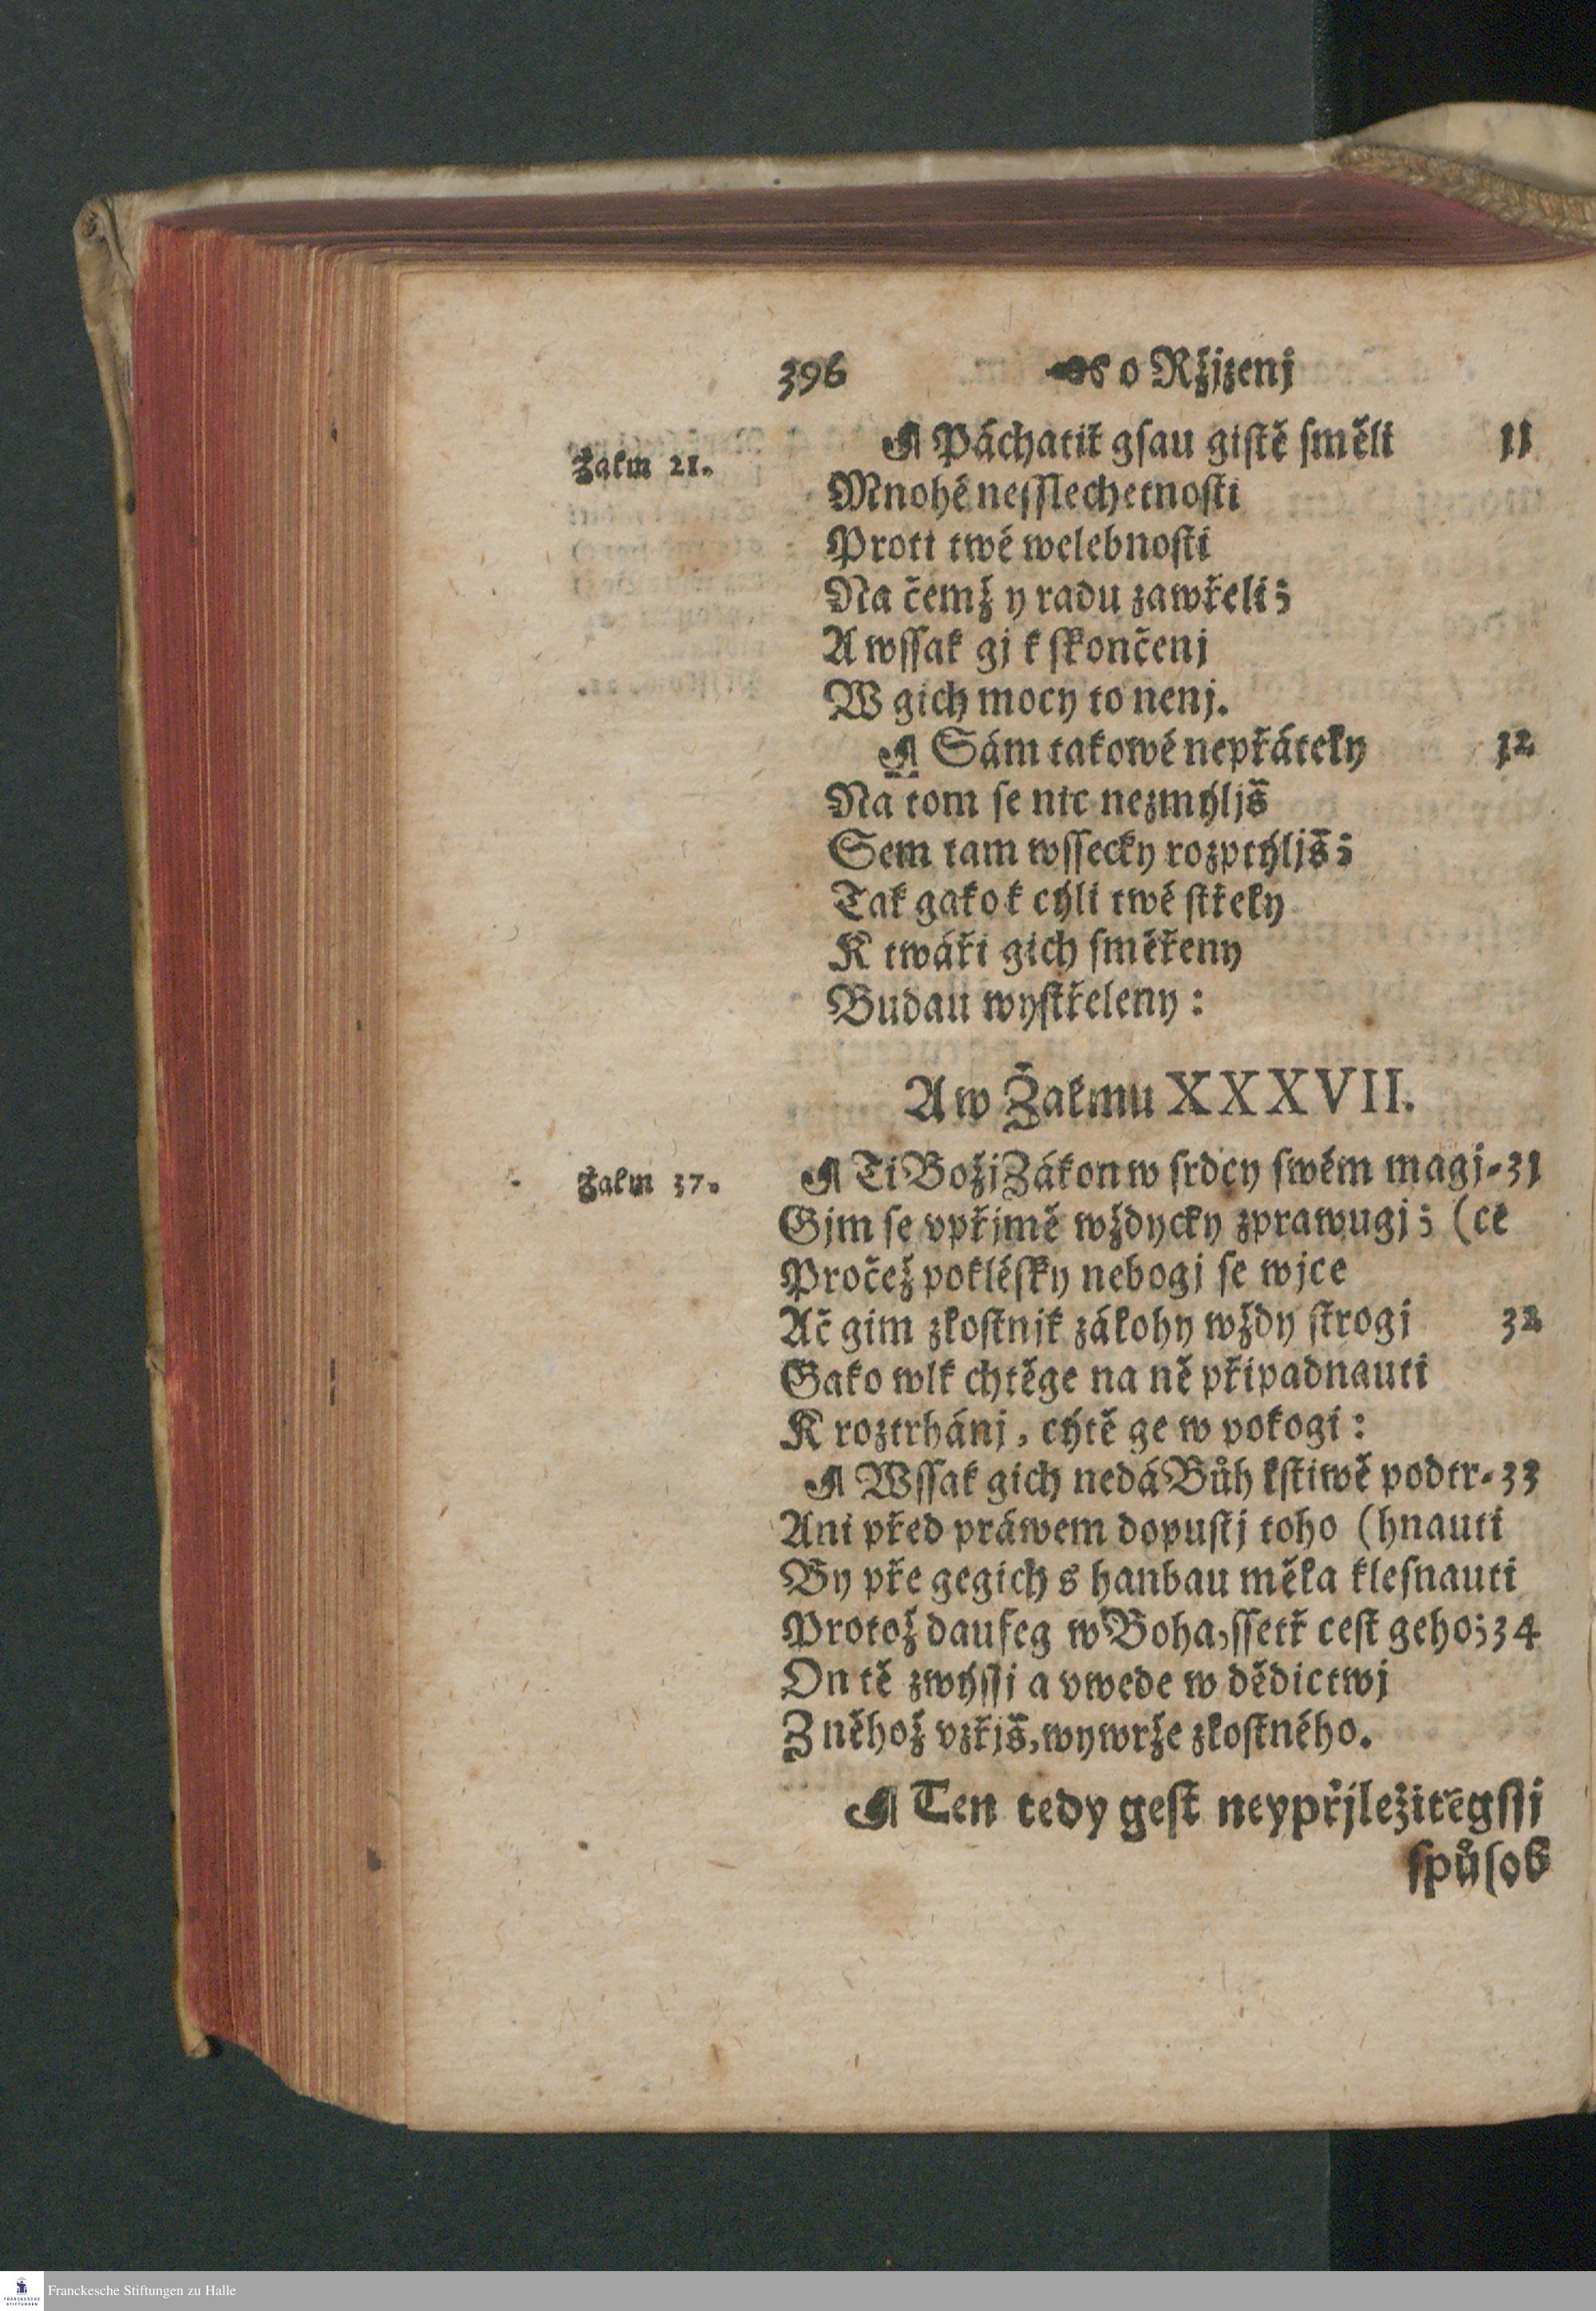 396 o Ržjzenj
Žalm 21.
Páchatiť gsau gistě směli 11
Mnohé nesslechetnosti
Proti twé welebnosti
Na čemž y radu zawřeli;
A wssak gj k skončenj
W gich mocy to nenj.
Sám takowé nepřátely 12
Na tom se nic nezmýljš
Sem tam wssecky rozptýljš;
Tak gako k cýli twé střely
K twáři gich směřeny
Budau wystřeleny:
A w Žalmu XXXVII.
Žalm 37.
Ti Božj Zákon w srdcy swém magj- 31
Gjm se vpřjmě wždycky zprawugj; (ce
Pročež poklésky nebogj se wjce
Ač gim zlostnjk zálohy wždy strogj 32
Gako wlk chtěge na ně připadnauti
K roztrhánj, cýtě ge w pokogi:
Wssak gich nedá Bůh lstiwě podtr- 33
Ani před práwem dopustj toho (hnauti
By pře gegich s hanbau měla klesnauti
Protož daufeg w Boha, ssetř cest geho; 34
On tě zwýssj a vwede w dědictwj
Z něhož vzřjš, wywrže zlostného.
Ten tedy gest neypřjležitěgssj
spůsob
Franckesche Stiftungen zu Halle